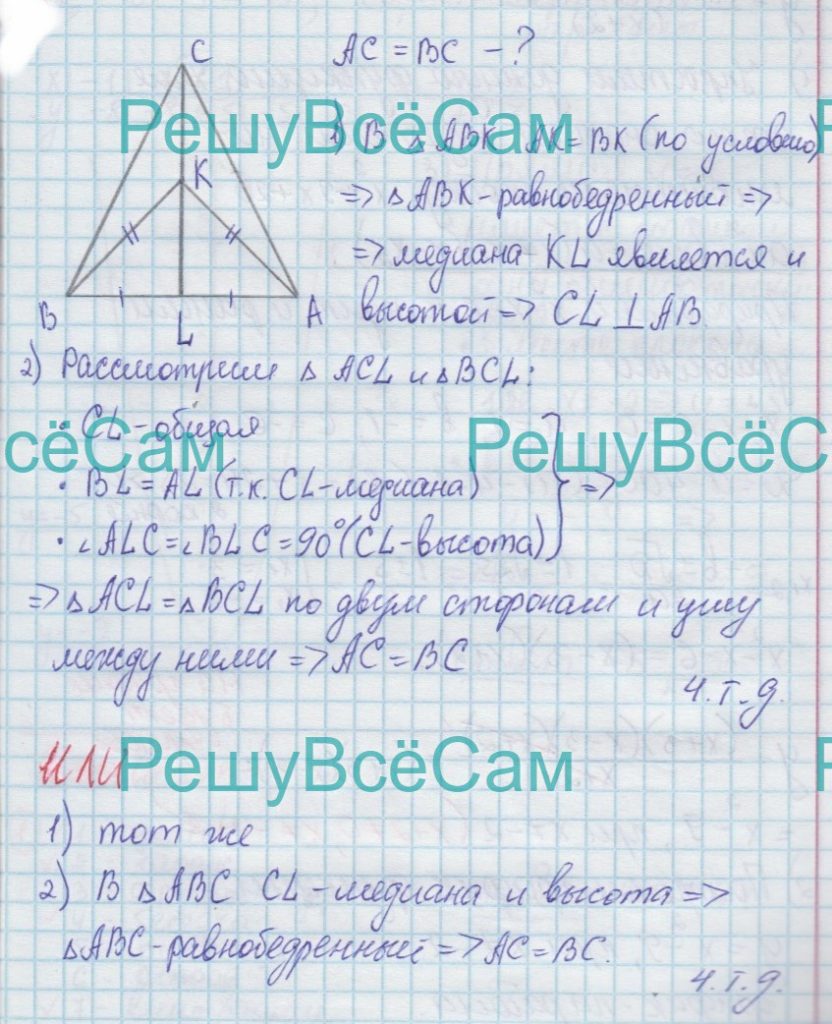 C
AC = BC - ?
РешуВсёСам
1) В △ ABK AK = BK (по условию)
K
=> △ ABK - равнобедренный =>
=> медиана KL является и
B
L
A
высотой => CL ⊥ AB.
2) Рассмотрим △ ACL и △ BCL:
• CL - общая
сёСам
РешуВсёС
• BL = AL (т.к. CL - медиана)
=>
• ∠ALC = ∠BLC = 90° (CL - высота)
=> △ ACL = △ BCL по двум сторонам и углу
между ними => AC = BC
ч.т.д.
ИЛИ
РешуВсёСам
1) тот же
2) В △ ABC CL - медиана и высота =>
△ ABC - равнобедренный => AC = BC.
ч.т.д.